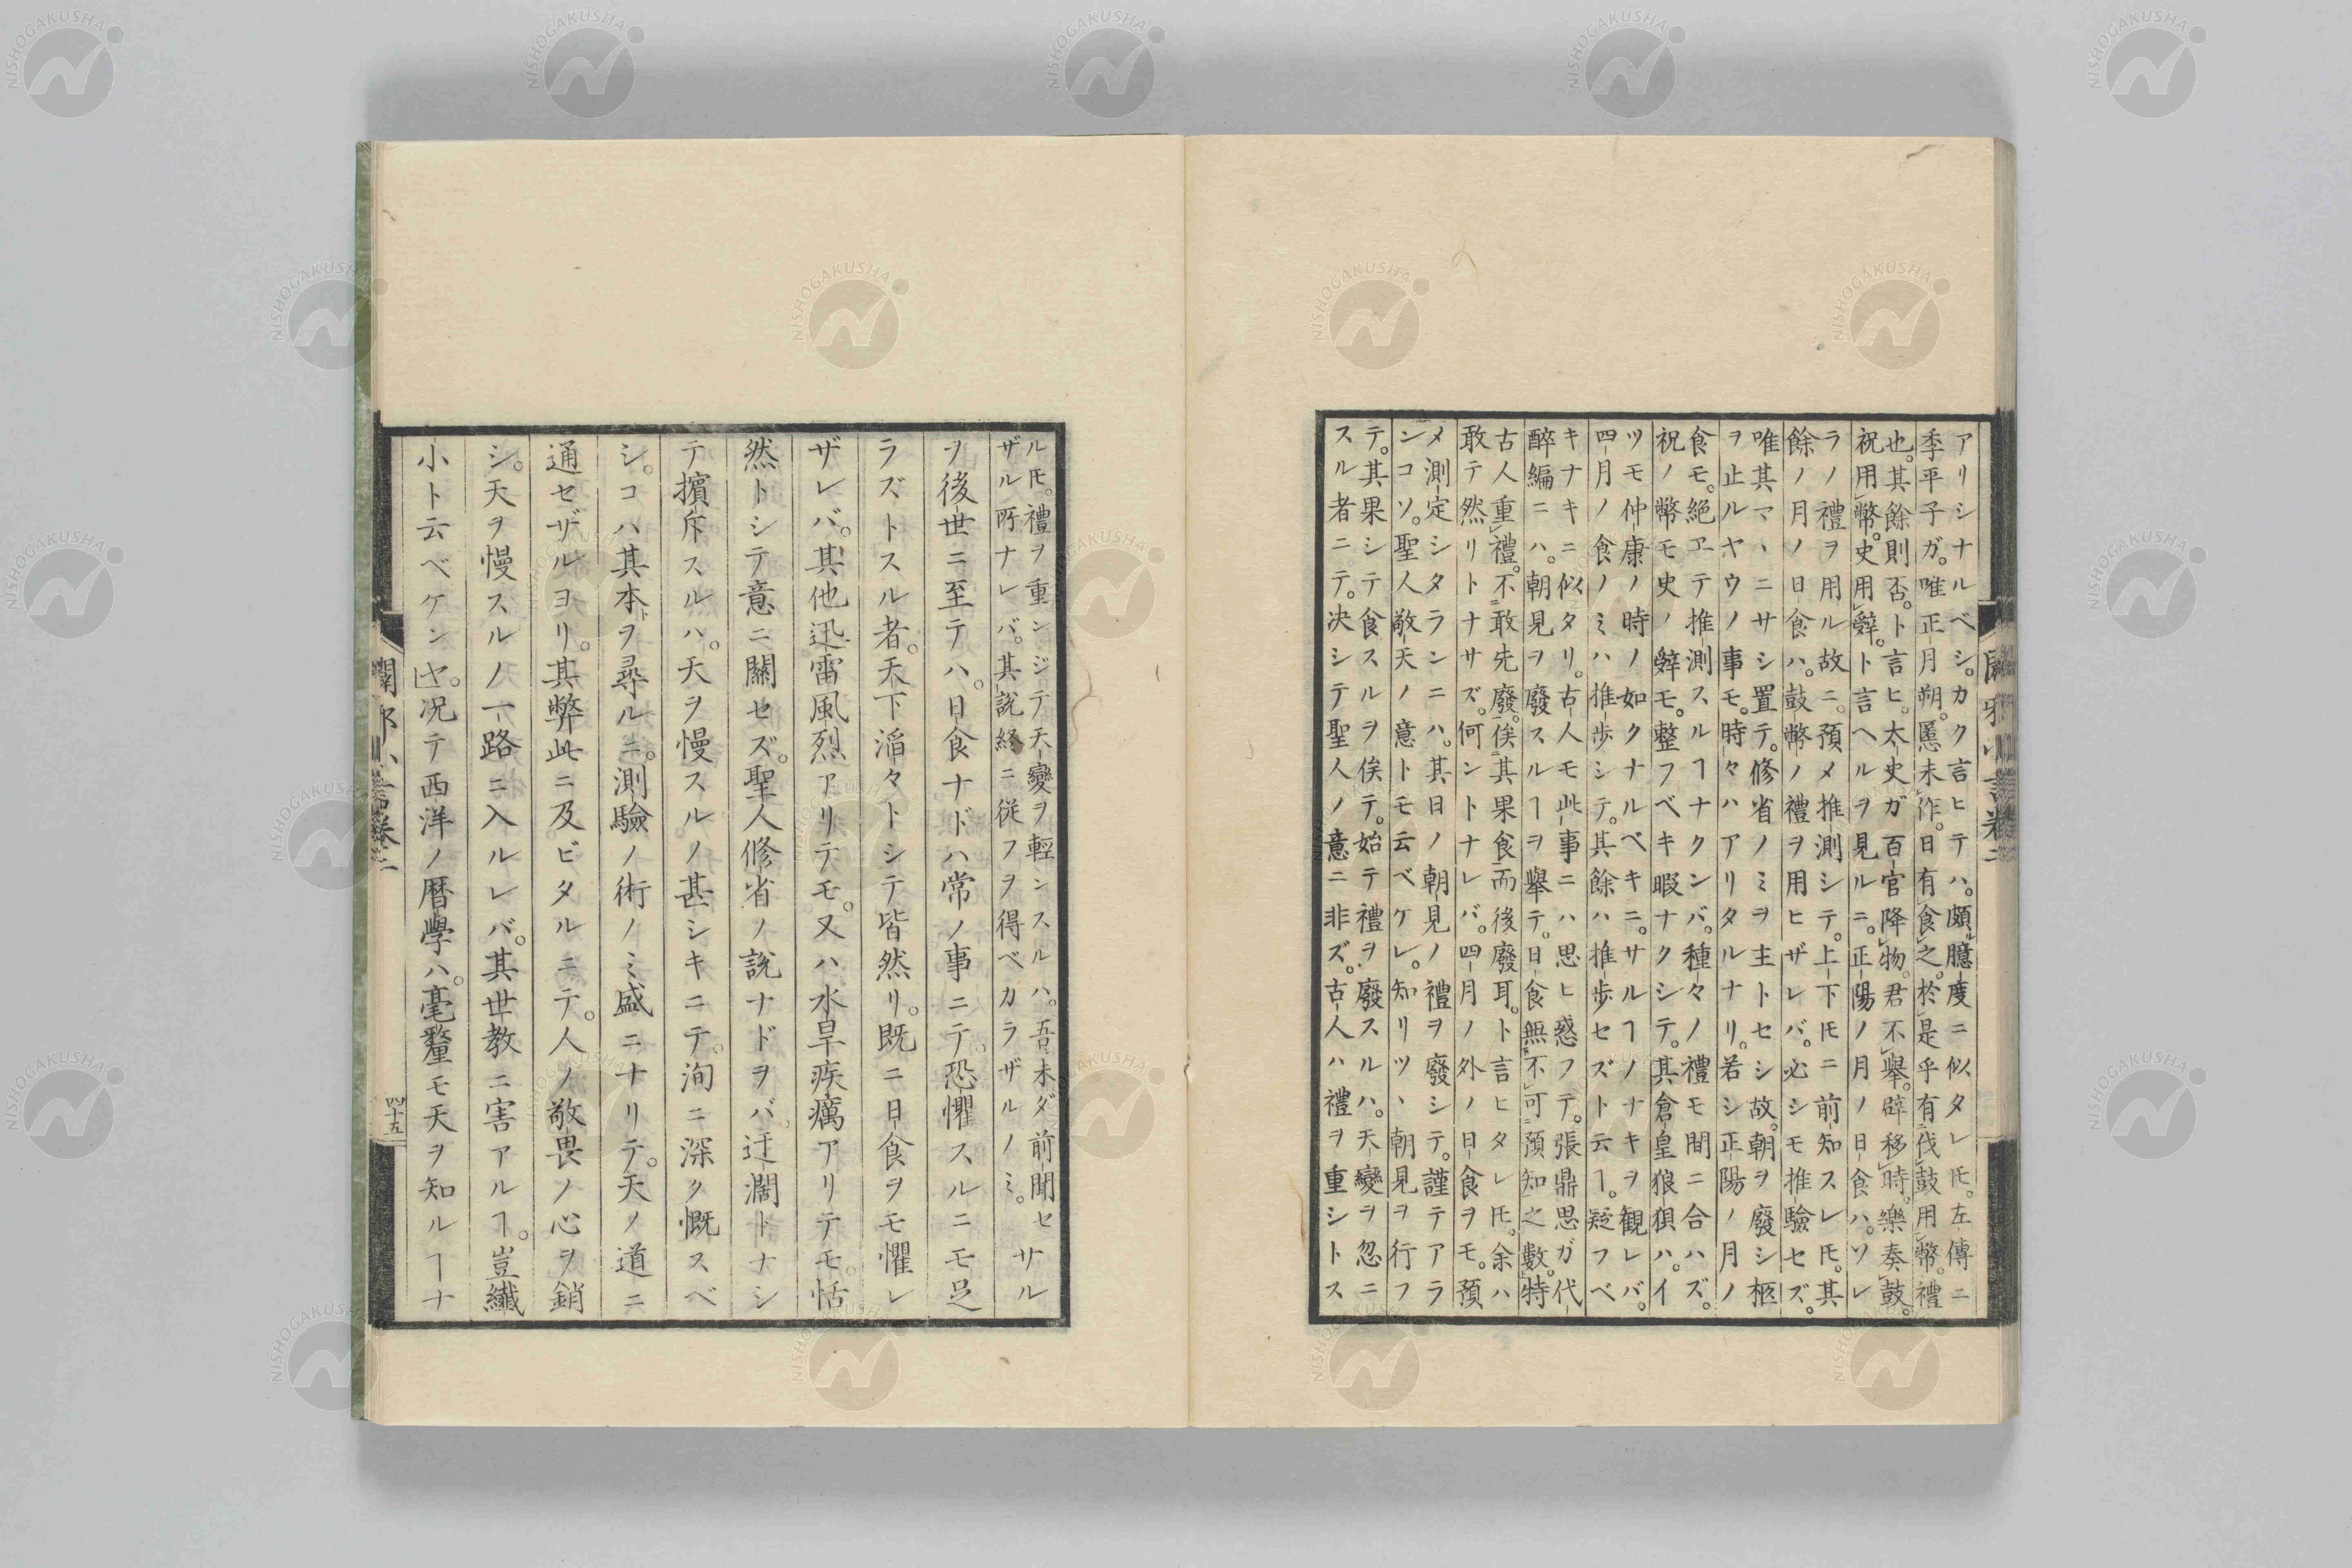 アリシナルベシ。カク言ヒテハ。頗臆度ニ似タレ𪜈。左傳ニ
季平子ガ。唯正月朔。慝未作。日有食之。於是乎有伐鼓用幣。禮
也。其餘則否。ト言ヒ。太史ガ百官降物。君不舉。辟移時。樂奏鼓。
祝用幣。史用辭。ト言ヘルヲ見ルニ。正陽ノ月ノ日食ハ。ソレ
ラノ禮ヲ用ル故ニ。預メ推測シテ。上下𪜈ニ前知スレ𪜈。其
餘ノ月ノ日食ハ。鼓幣ノ禮ヲ用ヒザレバ。必シモ推驗セズ。
唯其マヽニサシ置テ。修省ノミヲ主トセシ故。朝ヲ廢シ柩
ヲ止ルヤウノ事モ。時々ハアリタルナリ。若シ正陽ノ月ノ
食モ。絶ヱテ推測スルヿナクンバ。種々ノ禮モ間ニ合ハズ。
祝ノ幣モ史ノ辭モ。整フベキ暇ナクシテ。其倉皇狼狽ハ。イ
ツモ仲康ノ時ノ如クナルベキニ。サルヿノナキヲ観レバ。
四月ノ食ノミハ推歩シテ。其餘ハ推歩セズト云ヿ。疑フベ
キナキニ似タリ。古人モ此事ニハ思ヒ惑フテ。張鼎思ガ代
醉編ニハ。朝見ヲ廢スルヿヲ舉テ。日食無不可預知之數。特
古人重禮。不敢先廢。俟其果食而後廢耳。ト言ヒタレ𪜈。余ハ
敢テ然リトナサズ。何ントナレバ。四月ノ外ノ日食ヲモ。預
メ測定シタランニハ。其日ノ朝見ノ禮ヲ廢シテ。謹テアラ
ンコソ。聖人敬天ノ意トモ云ベケレ。知リツヽ朝見ヲ行フ
テ。其果シテ食スルヲ俟テ。始テ禮ヲ廢スルハ。天變ヲ忽ニ
スル者ニテ。決シテ聖人ノ意ニ非ズ。古人ハ禮ヲ重シトス
ル𪜈。禮ヲ重ンジテ天變ヲ輕ンスルハ。吾未ダ前聞セサル
ザル所ナレバ。其說終ニ従フヲ得ベカラザルノミ。
ヲ後世ニ至テハ。日食ナドハ常ノ事ニテ。恐懼スルニモ足
ラズトスル者。天下滔々トシテ皆然リ。既ニ日食ヲモ懼レ
ザレバ。其他迅雷風烈アリテモ。又ハ水旱疾癘アリテモ。恬
然トシテ意ニ關セズ。聖人修省ノ說ナドヲバ。迂濶トナシ
テ擯斥スルハ。天ヲ慢スルノ甚シキニテ。洵ニ深ク慨スベ
シ。コハ其本ヲ尋ルニ。測驗ノ術ノミ盛ニナリテ。天ノ道ニ
通セザルヨリ。其弊此ニ及ビタルニテ。人ノ敬畏ノ心ヲ銷
シ。天ヲ慢スルノ一路ニ入ルレバ。其世教ニ害アルヿ。豈纖
小ト云ベケンヤ。况テ西洋ノ曆學ハ。毫釐モ天ヲ知ルヿナ
四十五